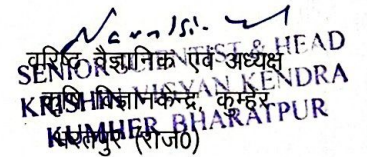 वरिष्ठ वैज्ञानिक एवं अध्यक्ष
SENIOR SCIENTIST & HEAD
कृषि विज्ञान केन्द्र, कुम्हेर
KRISHI VIGYAN KENDRA
भरतपुर (राज0)
KUMHER BHARATPUR